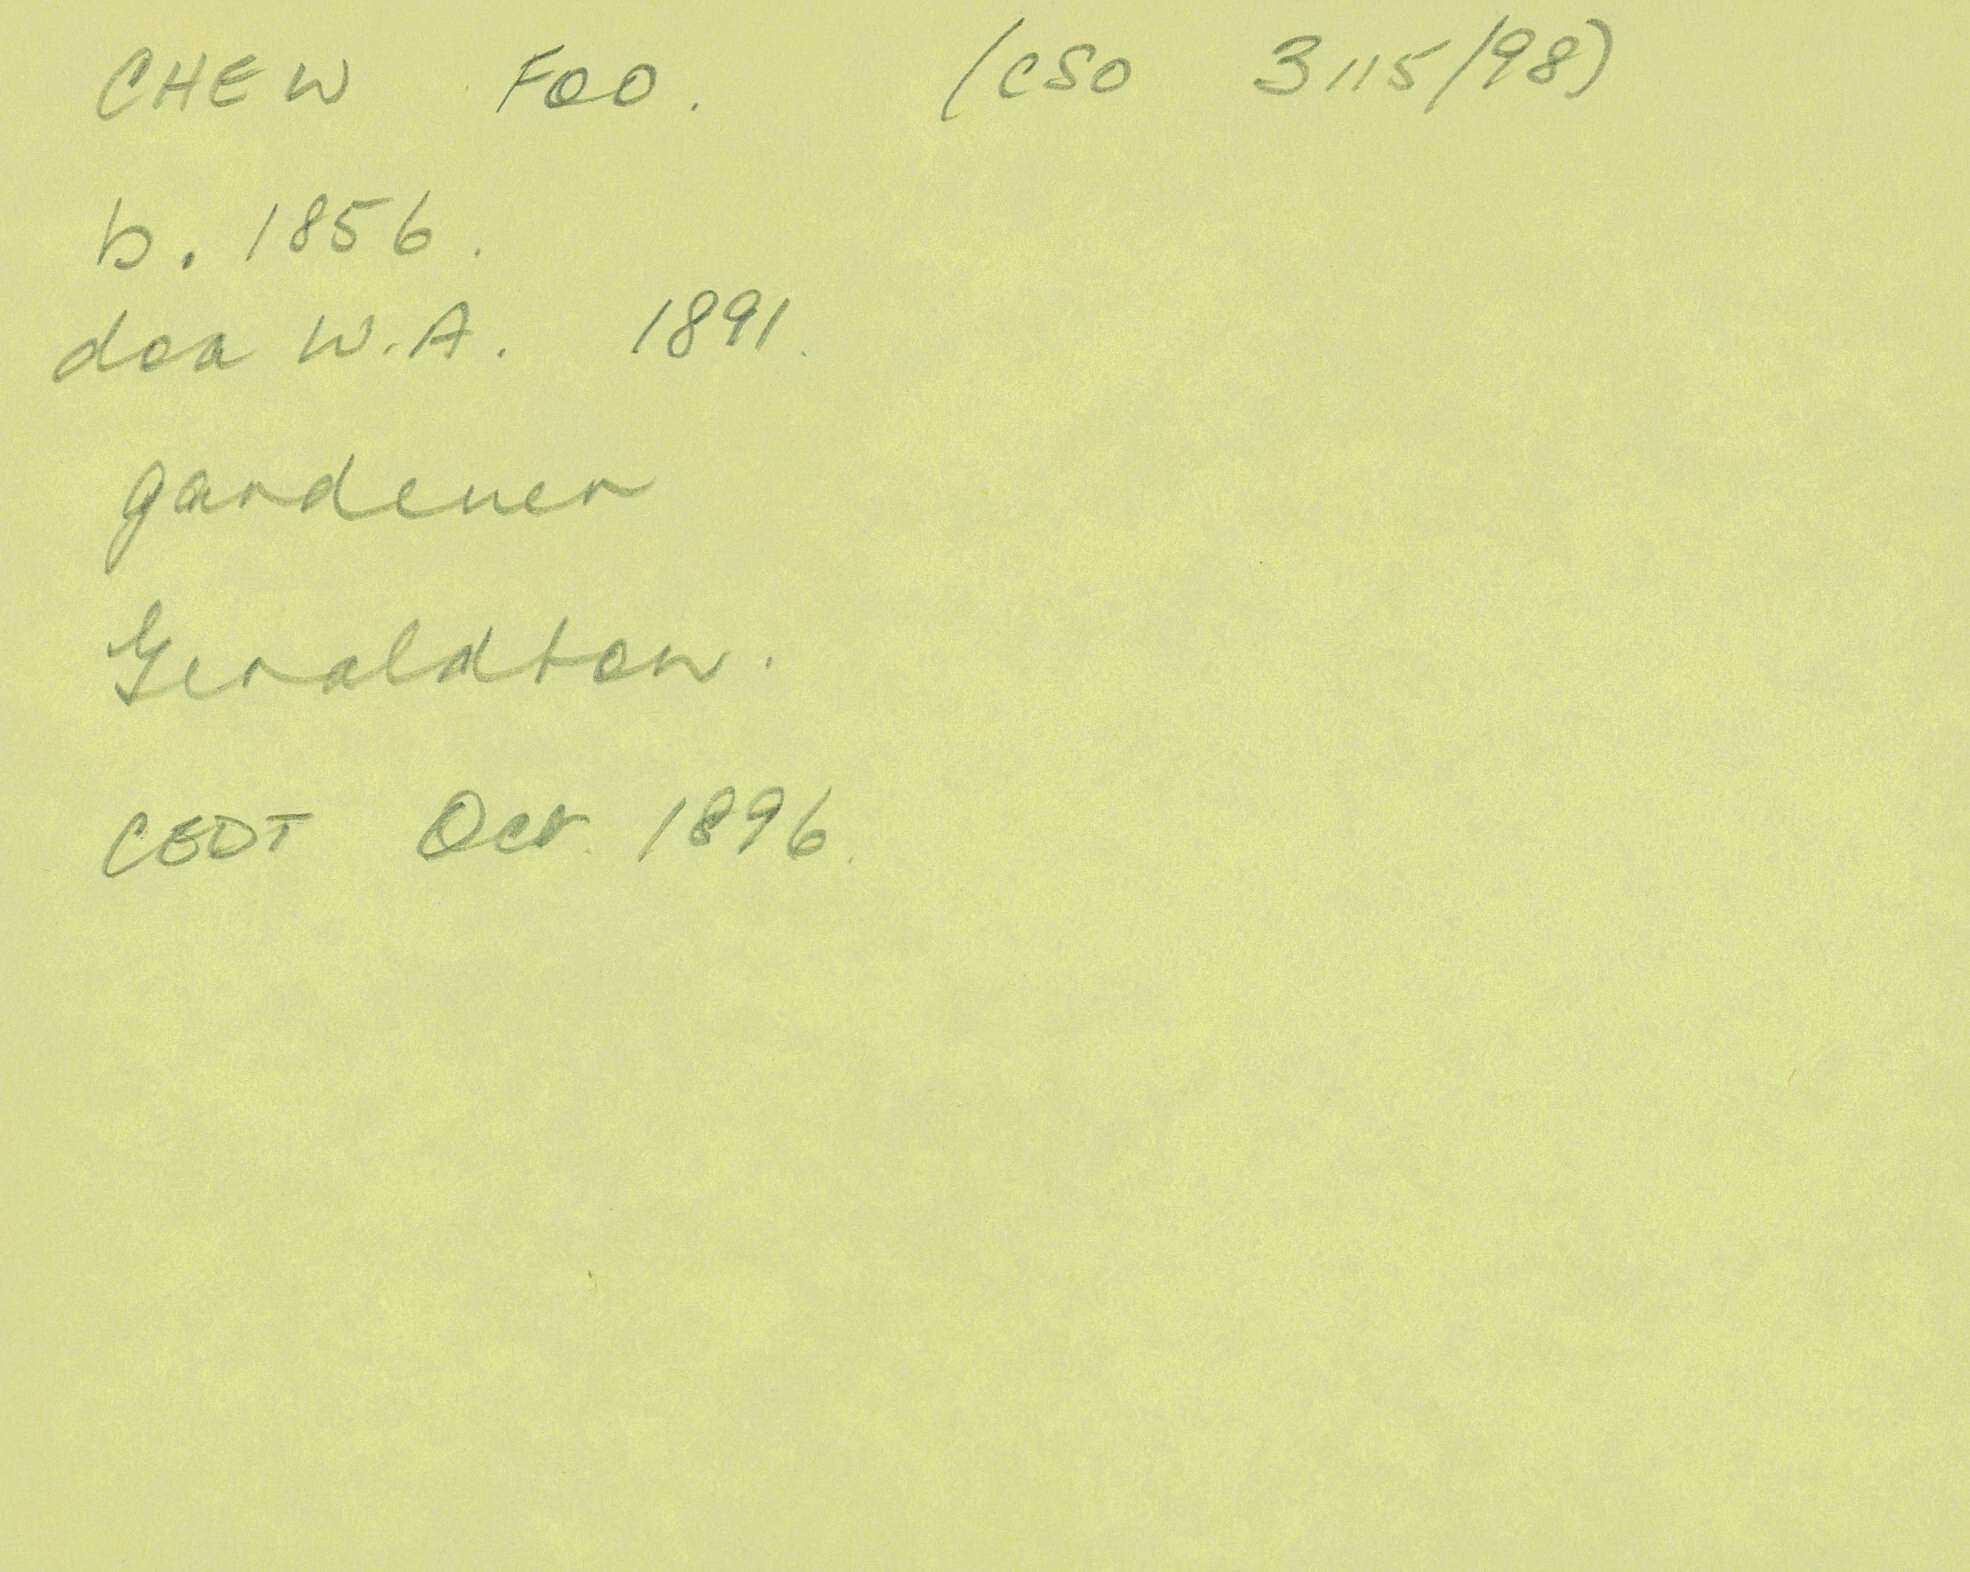 CHEW FOO. (CSO 3115/98)
b. 1856.
doa W.A. 1891.
gardener
Geraldton.
CEDT Oct 1896.